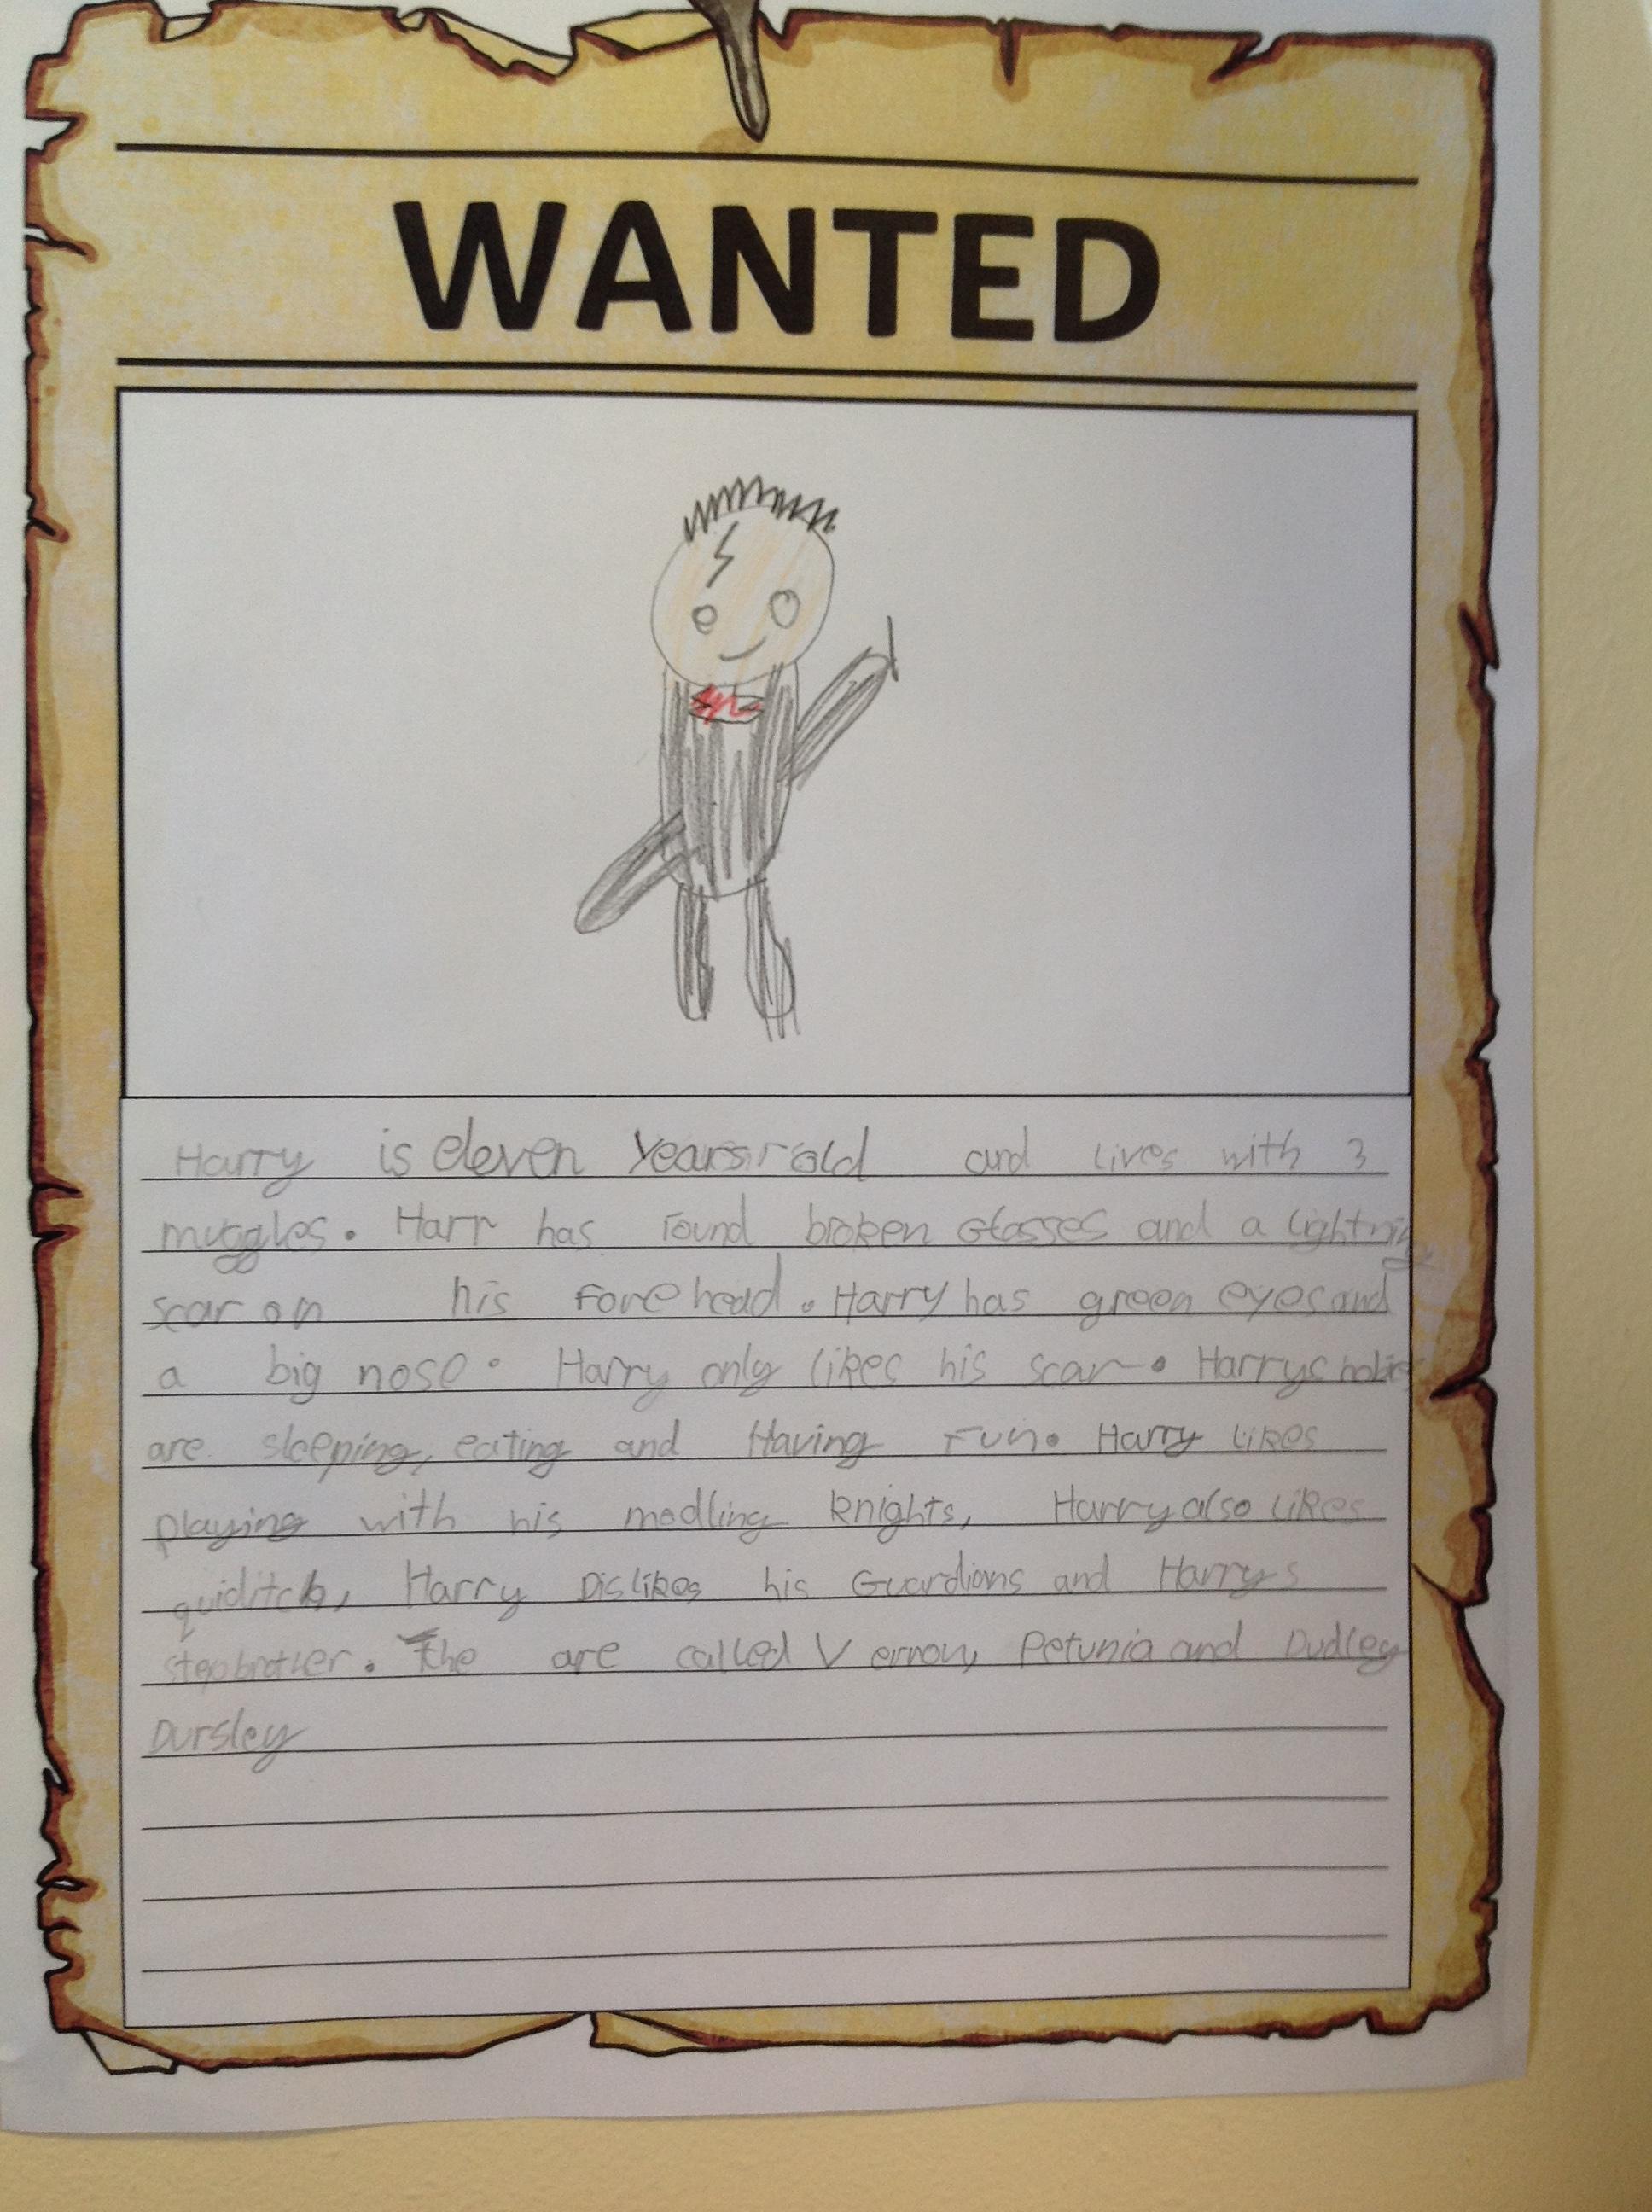 WANTED
Harry is eleven years old and lives with 3
muggles. Harr has round broken Glasses and a lightning
scar on his Forehead. Harry has green eyes and
a big nose. Harry only likes his scar. Harrys hobies
are sleeping, eating and Having Fun. Harry likes
playing with his modling knights, Harry also likes
quiditch, Harry Dislikes his Guardians and Harrys
stepbrother. The are called Vernon, Petunia and Dudley
Dursley